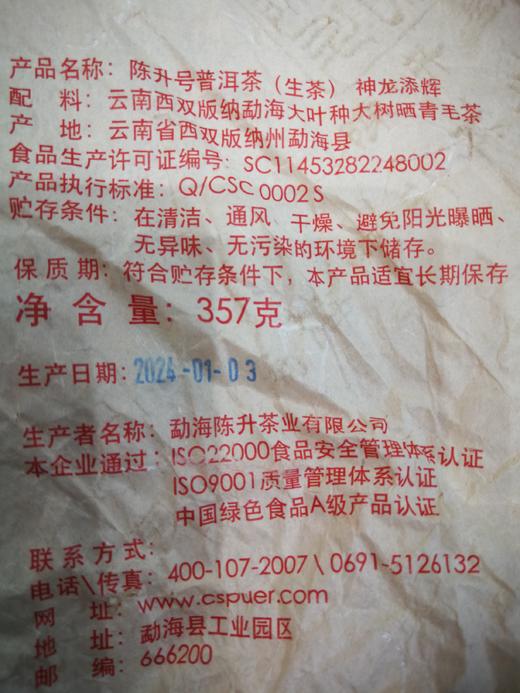 产品名称：陈升号普洱茶（生茶） 神龙添辉
配 料：云南西双版纳勐海大叶种大树晒青毛茶
产 地：云南省西双版纳州勐海县
食品生产许可证编号：SC11453282248002
产品执行标准：Q/CSC 0002 S
贮存条件：在清洁、通风、干燥、避免阳光曝晒、
无异味、无污染的环境下储存。
保 质 期：符合贮存条件下，本产品适宜长期保存
净 含 量：357克
生产日期：2024-01-03
生产者名称：勐海陈升茶业有限公司
本企业通过：ISO22000食品安全管理体系认证
ISO9001质量管理体系认证
中国绿色食品A级产品认证
联系方式：
电话\传真：400-107-2007 \ 0691-5126132
网 址：www.cspuer.com
地 址：勐海县工业园区
邮 编：666200